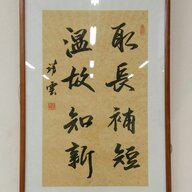 取長補短
温故知新
靖雲